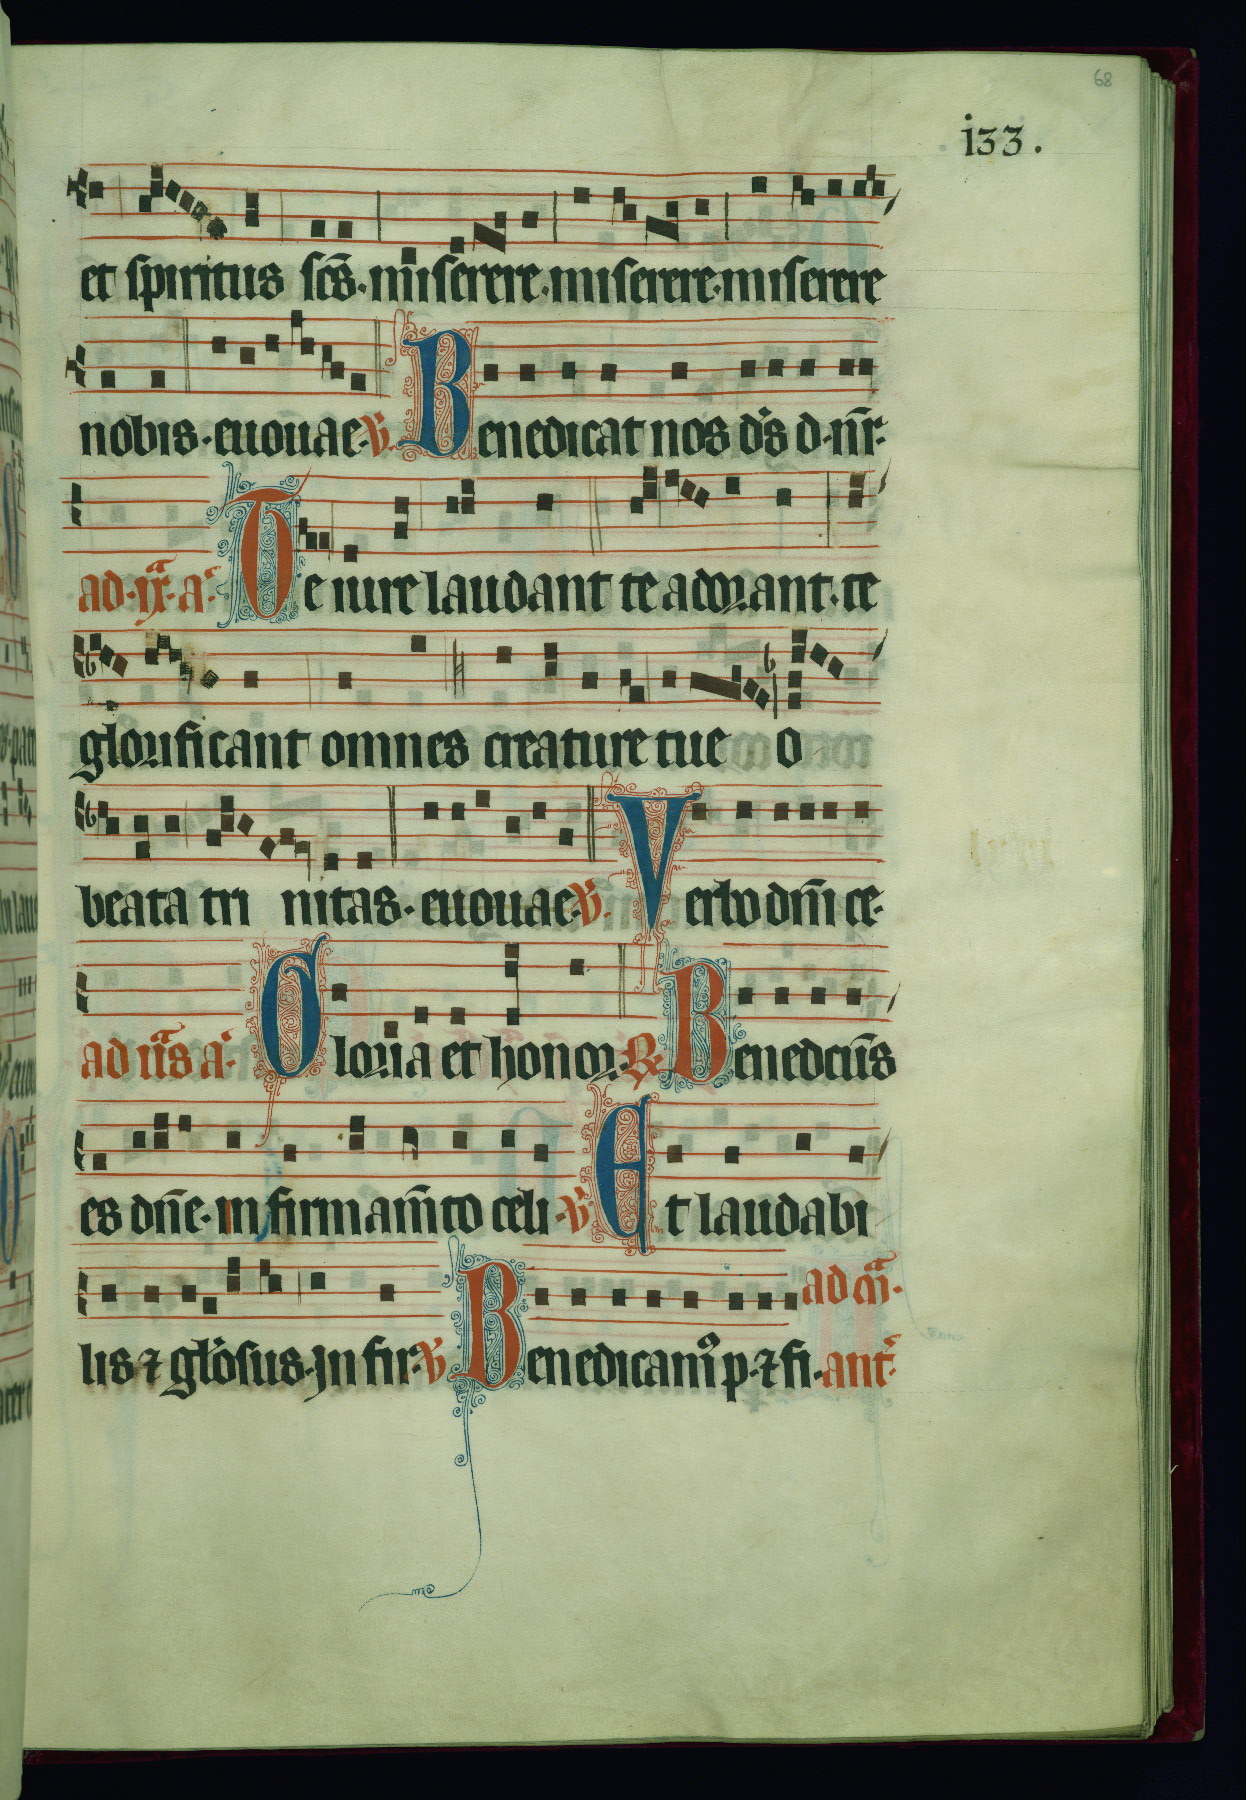 68
i33.
et spiritus scs̄. miserere. miserere. miserere
nobis. euouae. V̄. Benedicat nos ds̄ d. nr̄.
ad. ix.ᵃ a᷑ Te iure laudant te adorant. te
glorificant omnes creature tue o
beata tri nitas. euouae. V̄. Verbo dnī ce.
ad iiᵃs a᷑ Gloria et honor. R̄. Benedcūs
es dnē. in firmamn̄to celi. V̄. Et laudabi
lis ⁊ glōsus. In fir. V̄. Benedicamꝰ p. ⁊ fi. ad cᵃn̄. ant᷑